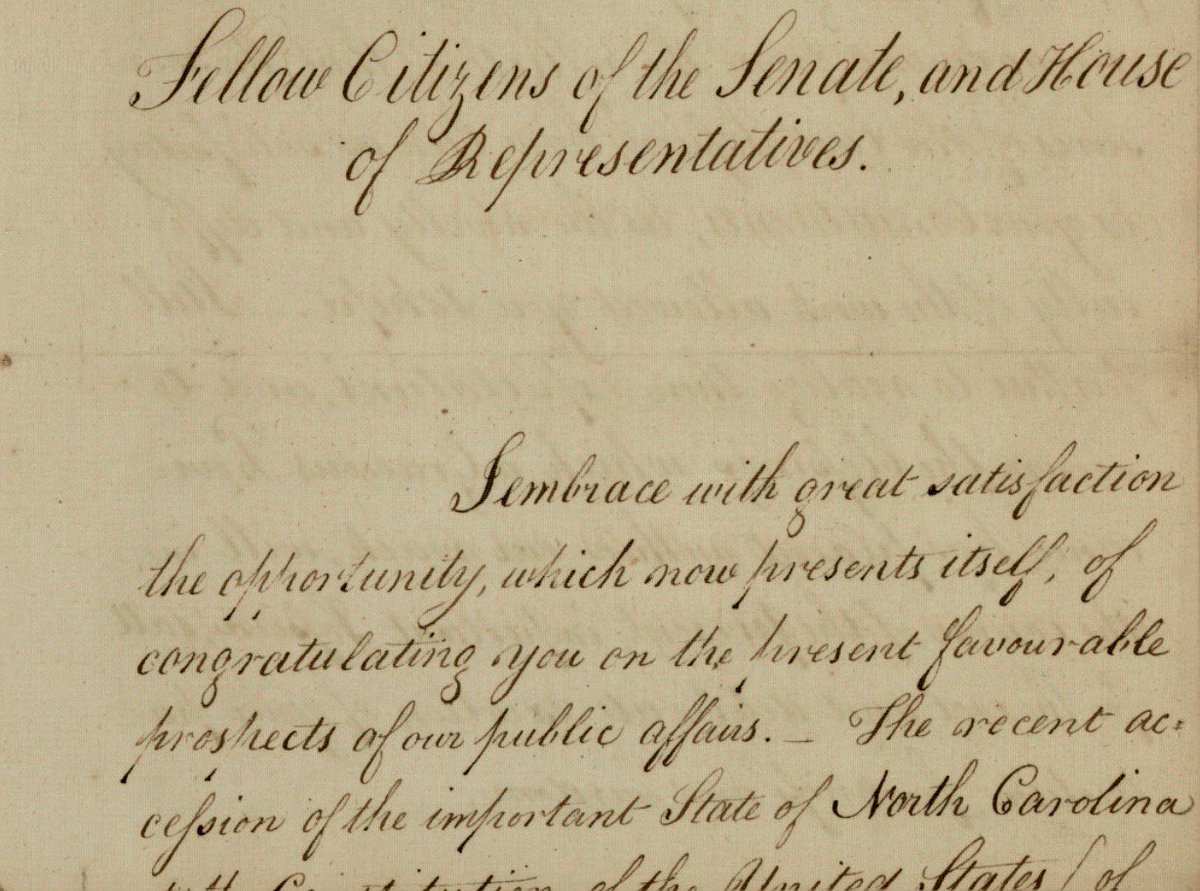 Fellow Citizens of the Senate, and House
of Representatives.
I embrace with great satisfaction
the opportunity, which now presents itself, of
congratulating you on the present favourable
prospects of our public affairs. _ The recent ac=
ceſsion of the important State of North Carolina
Constitution of the United States (of